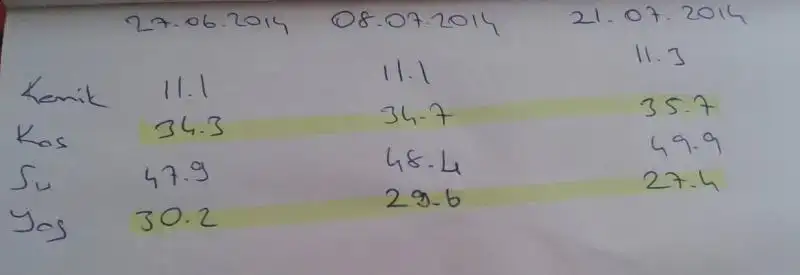 27.06.2014 08.07.2014 21.07.2014
Kemik 11.1 11.1 11.3
Kas 34.3 34.7 35.7
Su 47.9 48.4 49.9
Yağ 30.2 29.6 27.4